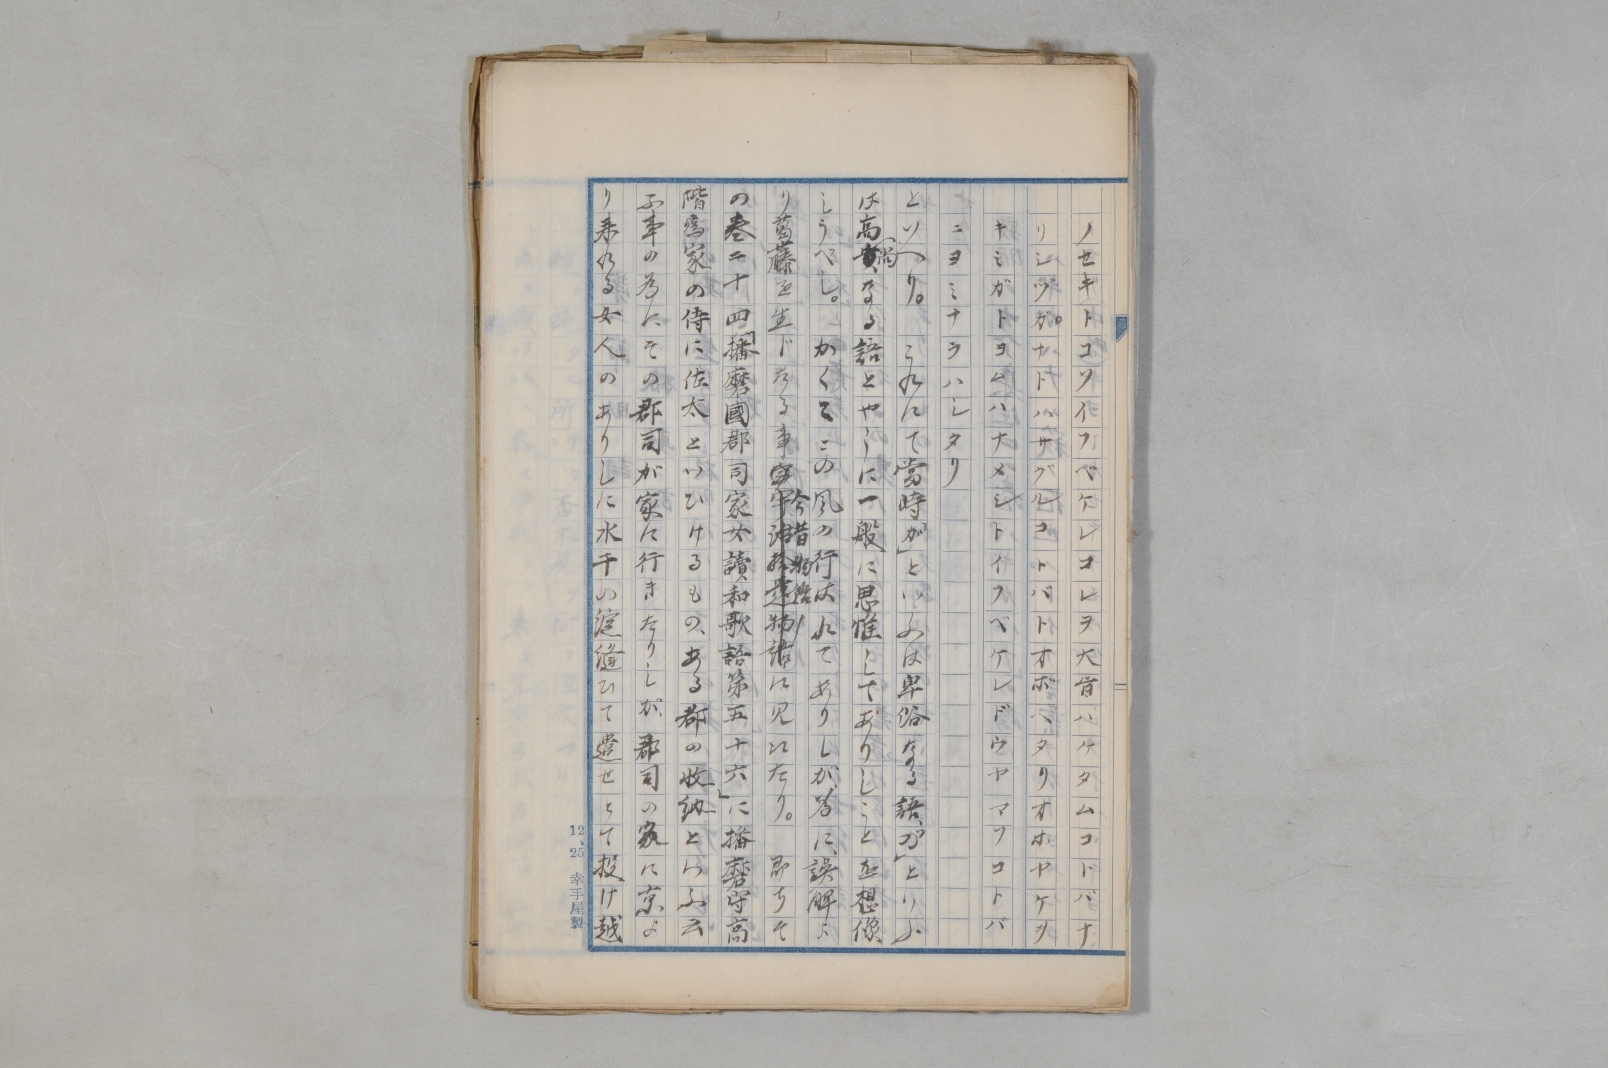 ノセキトコソイフベケレコレヲ大宮ハケタムコトバナ
リシヅガナドハサグルコトバトオボヘタリオホヤケヲ
キミガトヨムハナメシトイフベケレドウヤマフコトバ
ニヨミナラハシタリ
といへり。これにて當時「が」といふは卑俗なる語、「の」といふ
は高尚なる語とやうに一般に思惟してありしことを想像
しうべし。かくてこの風の行はれてありしが為に、誤解よ
り葛藤を生じたる事今昔物語に見えたり。即ちそ
の巻二十四「播磨國郡司家女讀和歌語第五十六」に播磨守高
階為家の侍に佐太といひけるもの、ある郡の收納といふ云
ふ事の為にその郡司が家に行きたりしが、郡司の家に京よ
り来れる女人のありしに水干の綻縫ひて遣せとて投げ越
12、25 幸手屋製